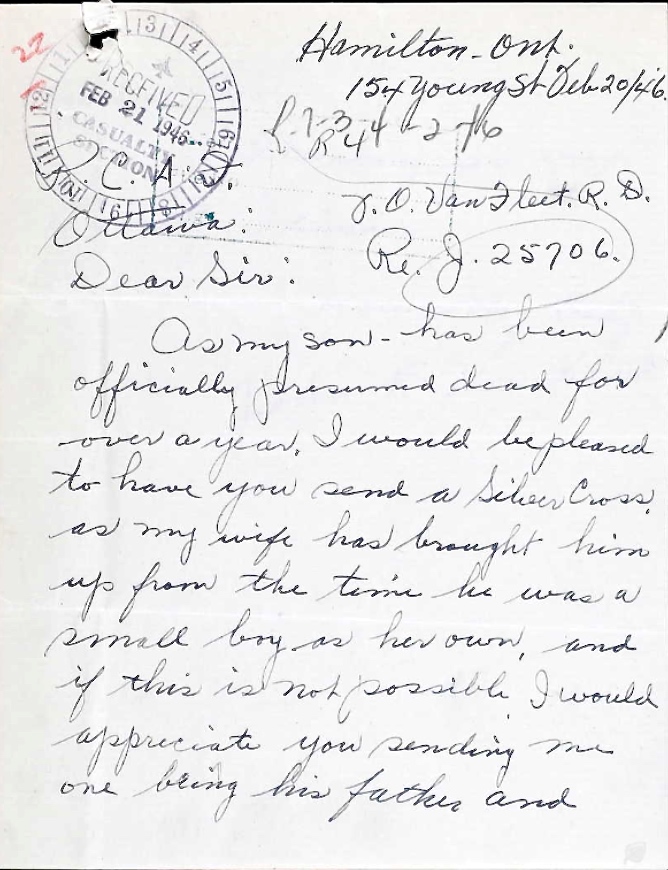 22
RECEIVED
FEB 21 1946
CASUALTY
SECTION
Hamilton - Ont.
154 Young St Feb 20/46.
R.C.A.F.
Ottawa:
J. O. Van Fleet. R. D.
Re. J. 25706.
Dear Sir:
As my son - has been
officially presumed dead for
over a year, I would be pleased
to have you send a Silver Cross,
as my wife has brought him
up from the time he was a
small boy as her own, and
if this is not possible I would
appreciate you sending me
one being his father and